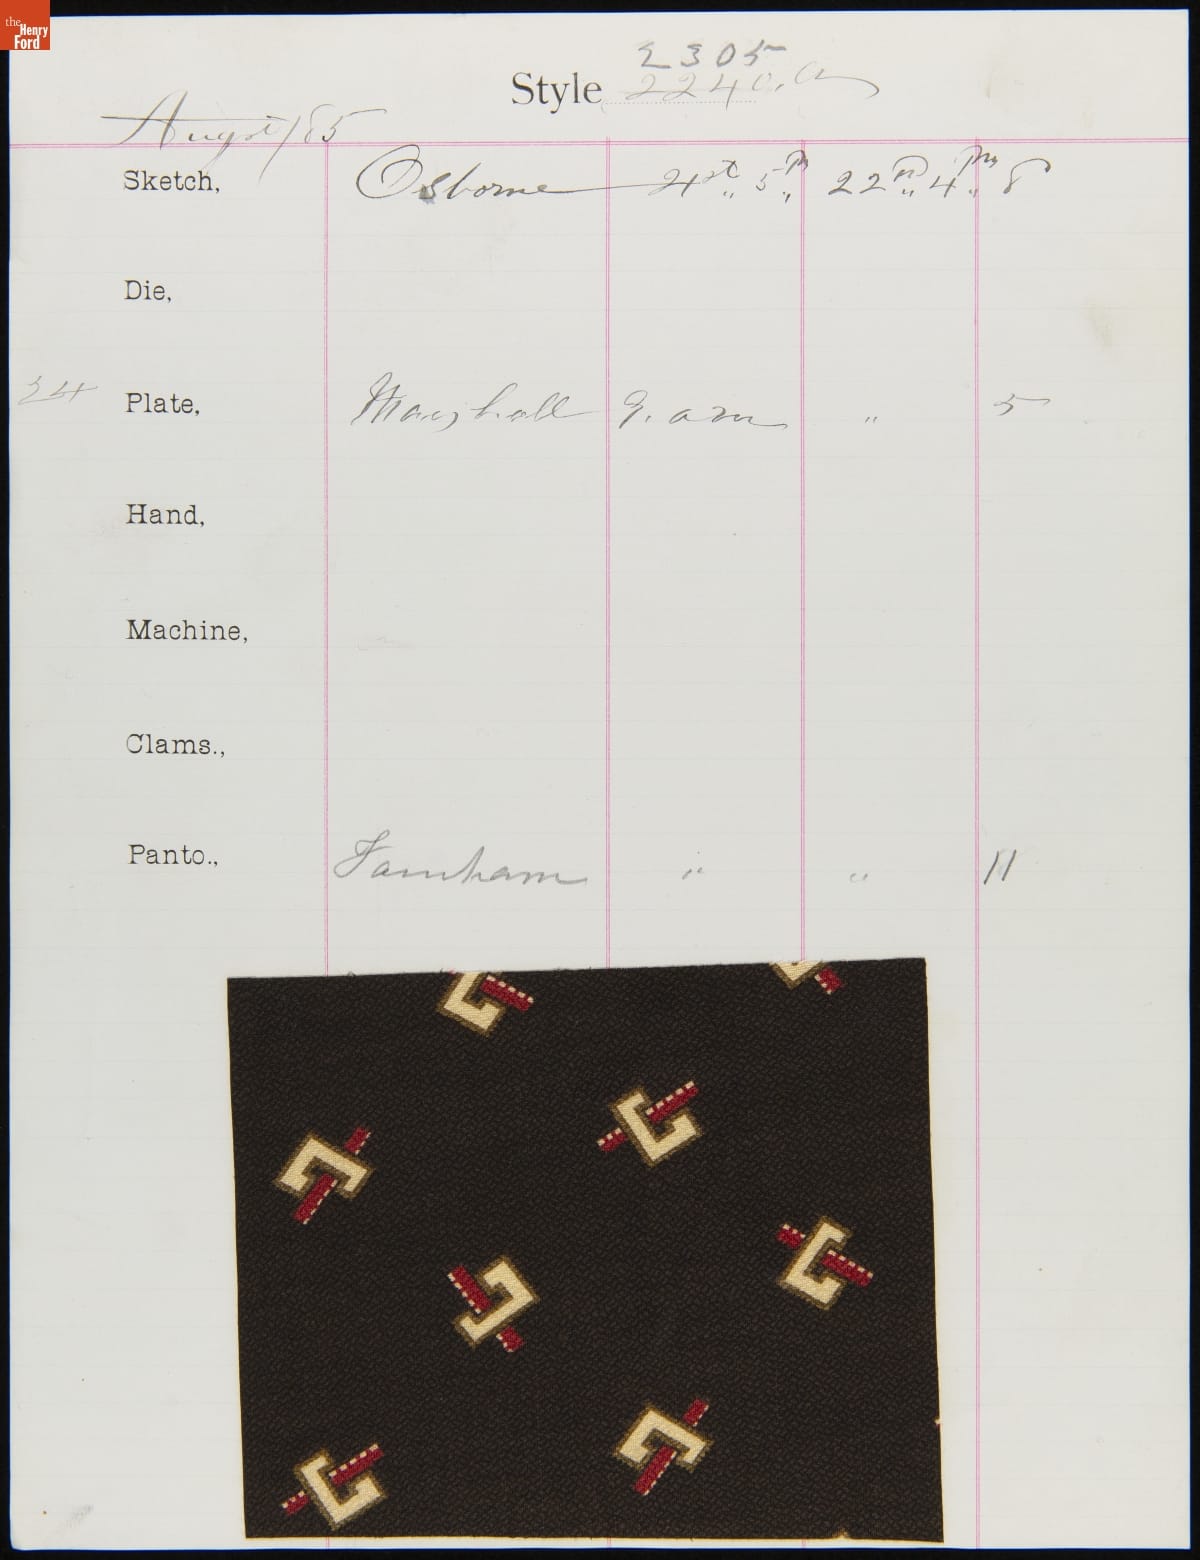 the
Henry
Ford
2305
Style 2240.
August/85
Sketch, Osborne 5 22 4 8
Die,
24 Plate, Marshall " 5
Hand,
Machine,
Clams.,
Panto., Farnham " " 11